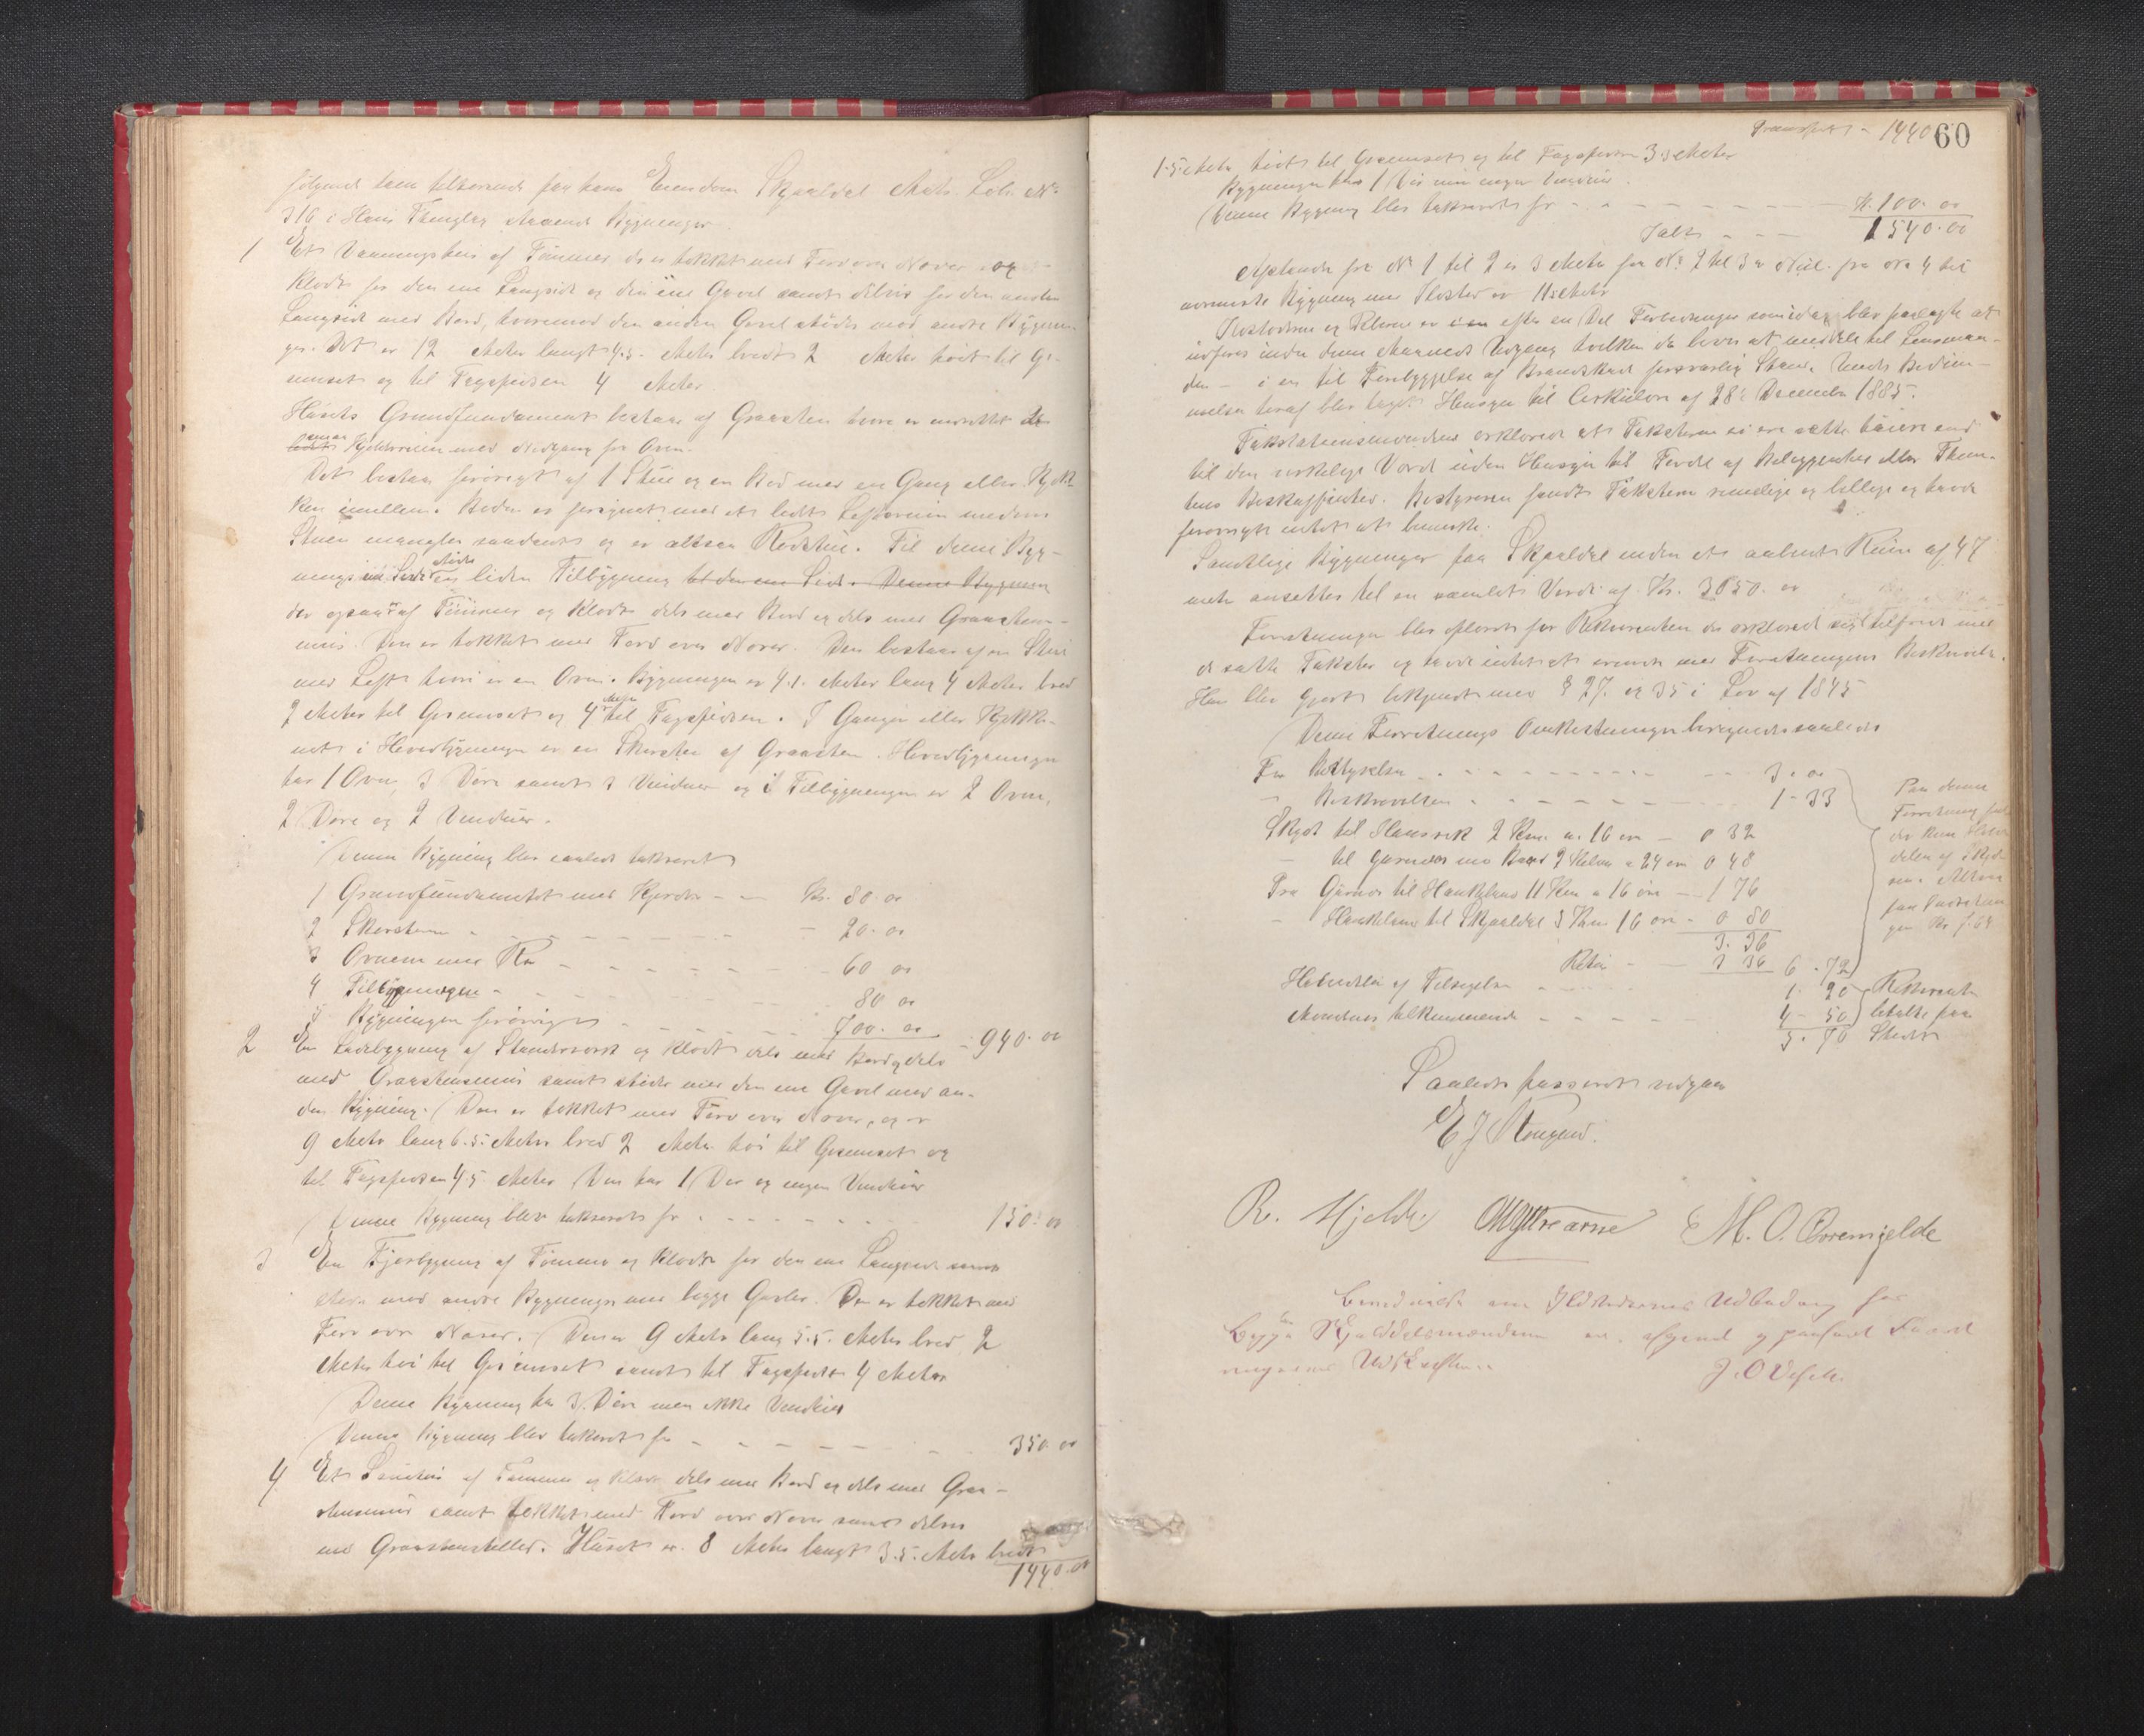 følgende ham tilhørende paa hans Eiendom Skjaaldal Matr. Løb. No
316 i Haus Thinglag staaende Bygninger.
1 Et Vaaningshus af Tømmer, der er tækket med Torv over Næver og
klædt for den ene Langside og den ene Gavl samt delvis for den anden
Langside med Bord, hvorimod den anden Gavl støder mod andre Bygnin-
ger. Det er 12 Meter langt 4.5. Meter bredt 2 Meter høit til Ge-
simset og til Tagspidsen 4 Meter
Husets Grundfundament bestaar af Graasten hvori er indrettet
Kjelderrum med Nedgang for Oven.
Det bestaar forøvrigt af 1 Stue og en Bod med en Gang eller Kjøk-
ken imellem. Boden er forsynet med et lidet Loftsrum medens
Stuen mangler saadant og er altsaa Røgstue. Til denne Byg-
nings ene Side støder en liden Tilbygning til den ene Side. Denne Bygning
der ogsaa er af Tømmer og klædt dels med Bord og dels med Graastens-
mur. Den er tækket med Torv over Næver. Den bestaar af en Stue
med Loft hvori er en Ovn. Bygningen er 4.1. Meter lang 4 Meter bred
2 Meter til Gesimset og 4 Meter til Tagspidsen. I Gangen eller Kjøkke-
net i Hovedbygningen er en Skorsten af Graasten. Hovedbygningen
har 1 Ovn, 3 Døre samt 3 Vinduer og i Tilbygningen er 2 Ovne,
2 Døre og 2 Vinduer.
Denne Bygning blev saaledes takseret
1 Grundfundamentet med Kjelder - - Kr. 80. 00
2 Skorstenen - - - 20. 00
3 Ovnene med Rør - - - 60 00
4 Tilbygningen - - - 80 00
5 Bygningen forøvrigt - - - 700. 00 - 940. 00
2 En Ladebygning af Stenderværk og klædt dels med Bord og dels
med Graastensmur samt støder med den ene Gavl mod an-
den Bygning. Den er tækket med Torv over Næver, og er
9 Meter lang 6.5. Meter bred 2 Meter høi til Gesimset og
til Tagspidsen 4.5 Meter Den har 1 Dør og ingen Vinduer
Denne Bygning blev takseret for - - - 150. 00
3 En Fjøsbygning af Tømmer og klædt for den ene Langside samt
støder mod andre Bygninger med begge Gavler. Den er tækket med
Torv over Næver. Den er 9 Meter lang 5.5. Meter bred 2
Meter høi til Gesimset samt til Tagspidsen 4 Meter
Denne Bygning har 3 Døre men ikke Vinduer
Denne Bygning blev takseret for - - - 350. 00
4 Et af Tømmer og klædt dels med Bord og dels med Graa-
stensmur samt tækket med Torv over Næver samt delvis
med Graastensheller. Huset er 8 Meter langt 3.5. Meter bredt
1440. 00
Transport - 1440 60
1.5 Meter høit til Gesimset og til Tagspidsen 3.5 Meter
Bygningen har 1 Dør men ingen Vinduer.
Denne Bygning blev takseret for - - - Kr. 100. 00
Ialt - - - 1540. 00
Afstanden fra No 1 til 2 er 3 Meter fra No 2 til 3 er Nul. fra No 4 til
nærmeste Bygning med Ildsted er 11 Meter
Ildstederne og Rørene er efter en Del Forbedringer som idag blev paalagte at
udføres inden denne Maaneds Udgang hvilken at meddele til Lensman-
den - i en til Forebyggelse af Brandskade forsvarlig Stand. Under Bedøm-
melsen heraf blev taget Hensyn til Cirkulære af 28de December 1885.
Takstationsmændene erklærede at Taksterne ei ere satte høiere end
til den virkelige Værdi uden Hensyn til Fordel af Beliggenhed eller Thom-
tens Beskaffenhed. Bestyreren fandt Taksterne rimelige og billige og havde
forøvrigt intet at bemærke.
Samtlige Bygninger paa Skjaaldal inden et aabent Rum af 47
meter ansættes til en samlet Værdi af Kr. 3050. 00
Forretningen blev oplæst for Rekvirenten der erklærede sig tilfreds med
de satte Takster og havde intet at erindre mod Forretningens Beskrivelse.
Han blev gjort bekjendt med § 27. og 35 i Lov af 1845
Denne Forretnings Omkostninger beregnedes saaledes
For Bestyrelsen - - - 3. 00
- Beskrivelsen - - - 1 - 33
Skyds til Hausvik 2 Km. a. 16 øre - 0 32
- til Garnes med Baad 2 Kilom a 24 øre 0 48
Fra Garnes til Haukeland 11 Km a 16 øre - 1 76
- Haukeland til Skjaaldal 5 Km. 16 øre - 0 80
3. 36
Retur - - 3 36 6. 72
Heboeløn af Tilsigelsen - - - 1. 20
Mændenes tilkommende - - - 4 - 50
5. 70
Paa denne
Forretning
der kun Halv-
delen af Skyds-
sen. Altsaa
paa Forretnin-
gen Kr 7.64
Rekvirenten
betalte paa
Stedet
Saaledes passeret vidner
E J
R. Mjelde. M. O. Børremjelde
Bevidnelse om Ildstedernes Udbedring for
begge Skjaaldalsmændene er afgivet og paaført
ningernes Udskrifter.